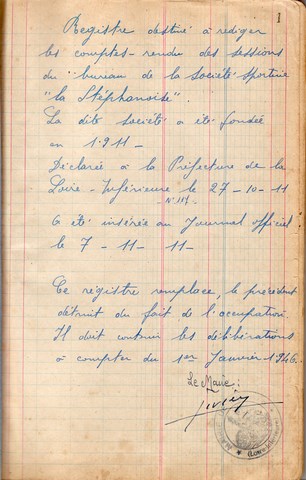 1
Registre destiné à rédiger
les comptes-rendu des sessions
du bureau de la Société Sportive
"la Stéphanoise".
La dite société a été fondée
en 1911-
Déclarée à la Préfecture de la
Loire-Inférieure le 27-10-11
N° 1151
A été insérée au Journal Officiel
le 7-11-11-
Ce régistre remplace, le précédent
détruit du fait de l'occupation.
Il doit contenir les délibérations
à compter du 1er Janvier 1946.
Le Maire: